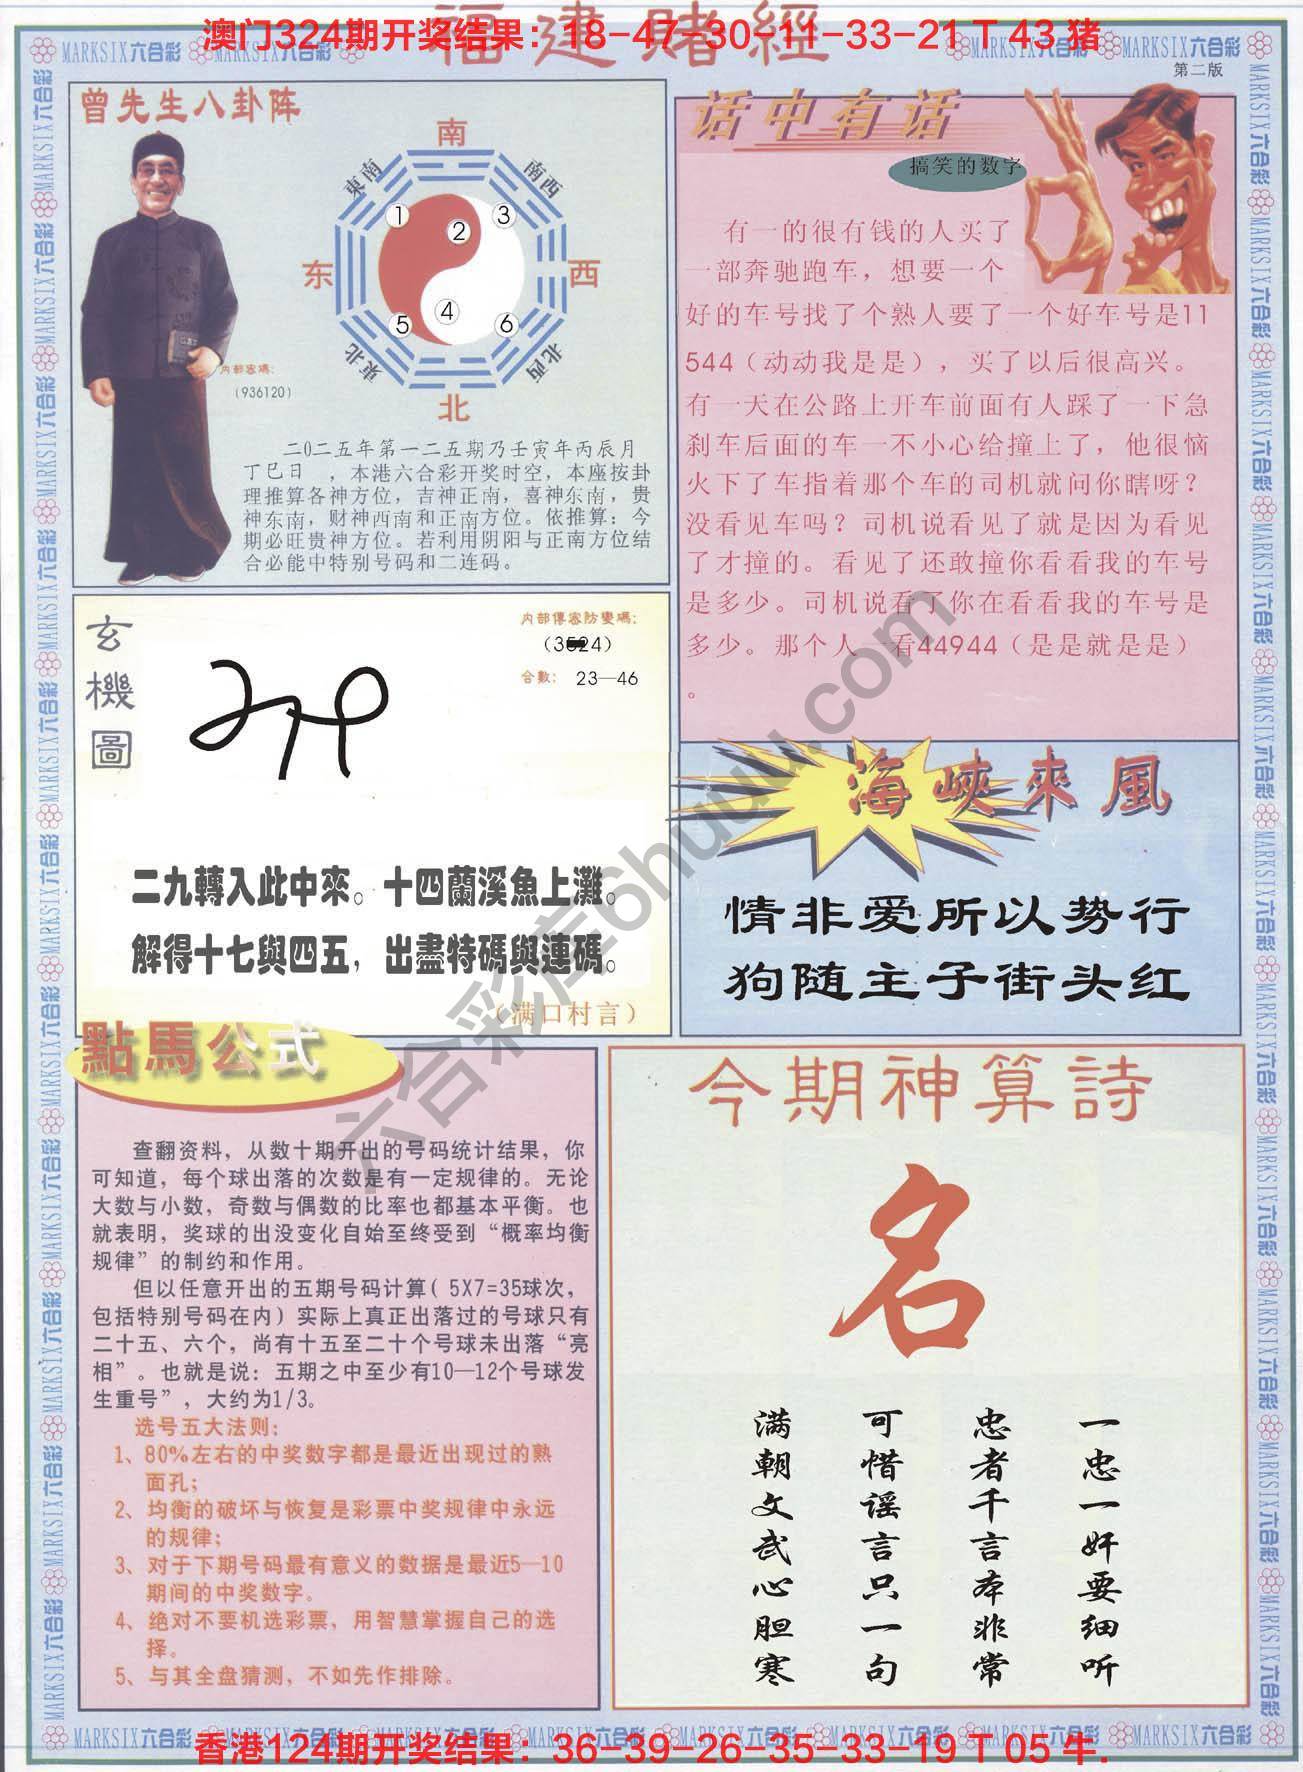 福建賭經
澳门324期开奖结果：18-47-30-11-33-21 T 43 猪
MARKSIX六合彩 MARKSIX六合彩 MARKSIX六合彩 MARKSIX六合彩
第二版
曾先生八卦阵
南
東南
南西
1
2
3
东
西
4
5
6
東北
北西
北
内部密碼:
(936120)
二O二五年第一二五期乃壬寅年丙辰月
丁巳日 ，本港六合彩开奖时空，本座按卦
理推算各神方位，吉神正南，喜神东南，贵
神东南，财神西南和正南方位。依推算：今
期必旺贵神方位。若利用阴阳与正南方位结
合必能中特别号码和二连码。
话中有话
搞笑的数字
有一的很有钱的人买了
一部奔驰跑车，想要一个
好的车号找了个熟人要了一个好车号是11
544（动动我是是），买了以后很高兴。
有一天在公路上开车前面有人踩了一下急
刹车后面的车一不小心给撞上了，他很恼
火下了车指着那个车的司机就问你瞎呀？
没看见车吗？司机说看见了就是因为看见
了才撞的。看见了还敢撞你看看我的车号
是多少。司机说看了你在看看我的车号是
多少。那个人一看44944（是是就是是）
。
玄機圖
内部傳密防變碼:
合數: 23—46
二九轉入此中來。十四蘭溪魚上灘。
解得十七與四五，出盡特碼與連碼。
（满口村言）
海峽來風
情非爱所以势行
狗随主子街头红
點馬公式
查翻资料，从数十期开出的号码统计结果，你
可知道，每个球出落的次数是有一定规律的。无论
大数与小数，奇数与偶数的比率也都基本平衡。也
就表明，奖球的出没变化自始至终受到“概率均衡
规律”的制约和作用。
但以任意开出的五期号码计算( 5X7=35球次，
包括特别号码在内）实际上真正出落过的号球只有
二十五、六个，尚有十五至二十个号球未出落“亮
相”。也就是说：五期之中至少有10—12个号球发
生重号”，大约为1/3。
选号五大法则:
1、80%左右的中奖数字都是最近出现过的熟
面孔;
2、均衡的破坏与恢复是彩票中奖规律中永远
的规律;
3、对于下期号码最有意义的数据是最近5—10
期间的中奖数字。
4、绝对不要机选彩票，用智慧掌握自己的选
择。
5、与其全盘猜测，不如先作排除。
今期神算詩
名
一忠一奸要细听
忠者千言本非常
可惜谣言只一句
满朝文武心胆寒
六合彩库6huuu.com
MARKSIX六合彩 MARKSIX六合彩 MARKSIX六合彩 MARKSIX六合彩
香港124期开奖结果：36-39-26-35-33-19 T 05 牛.